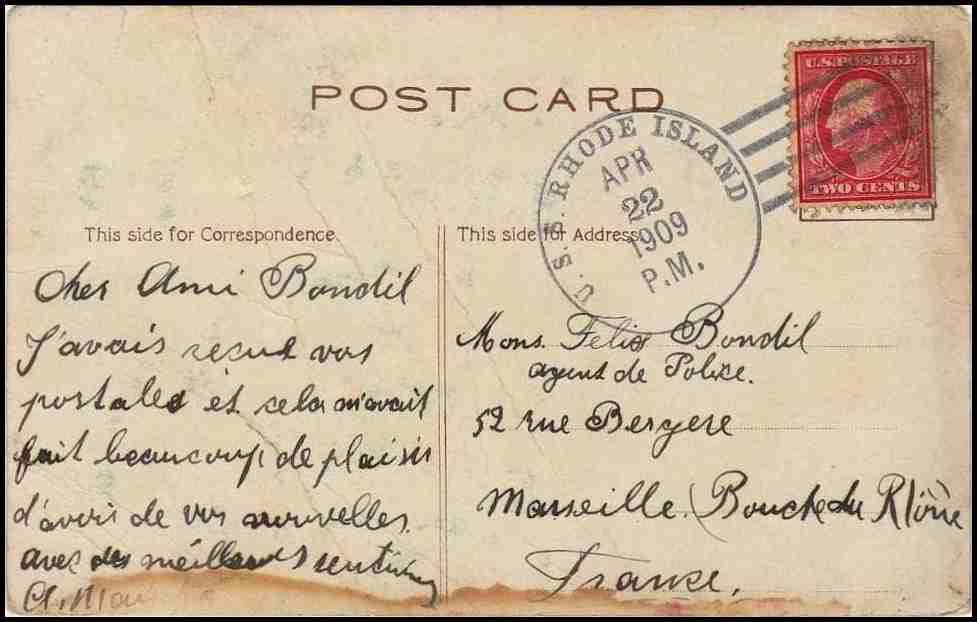 POST CARD
U.S. POSTAGE
TWO CENTS
U.S.S. RHODE ISLAND
APR
22
1909
P.M.
This side for Correspondence
Cher Ami Bondil
J'avais recue vos
postales et cela m'avait
fait beaucoup de plaisir
d'avoir de vos nouvelles
avec des meilleurs
This side for Address.
Mons. Felix Bondil
agent de Police.
52 rue Bergere
Marseille (Bouche du Rhône
France.